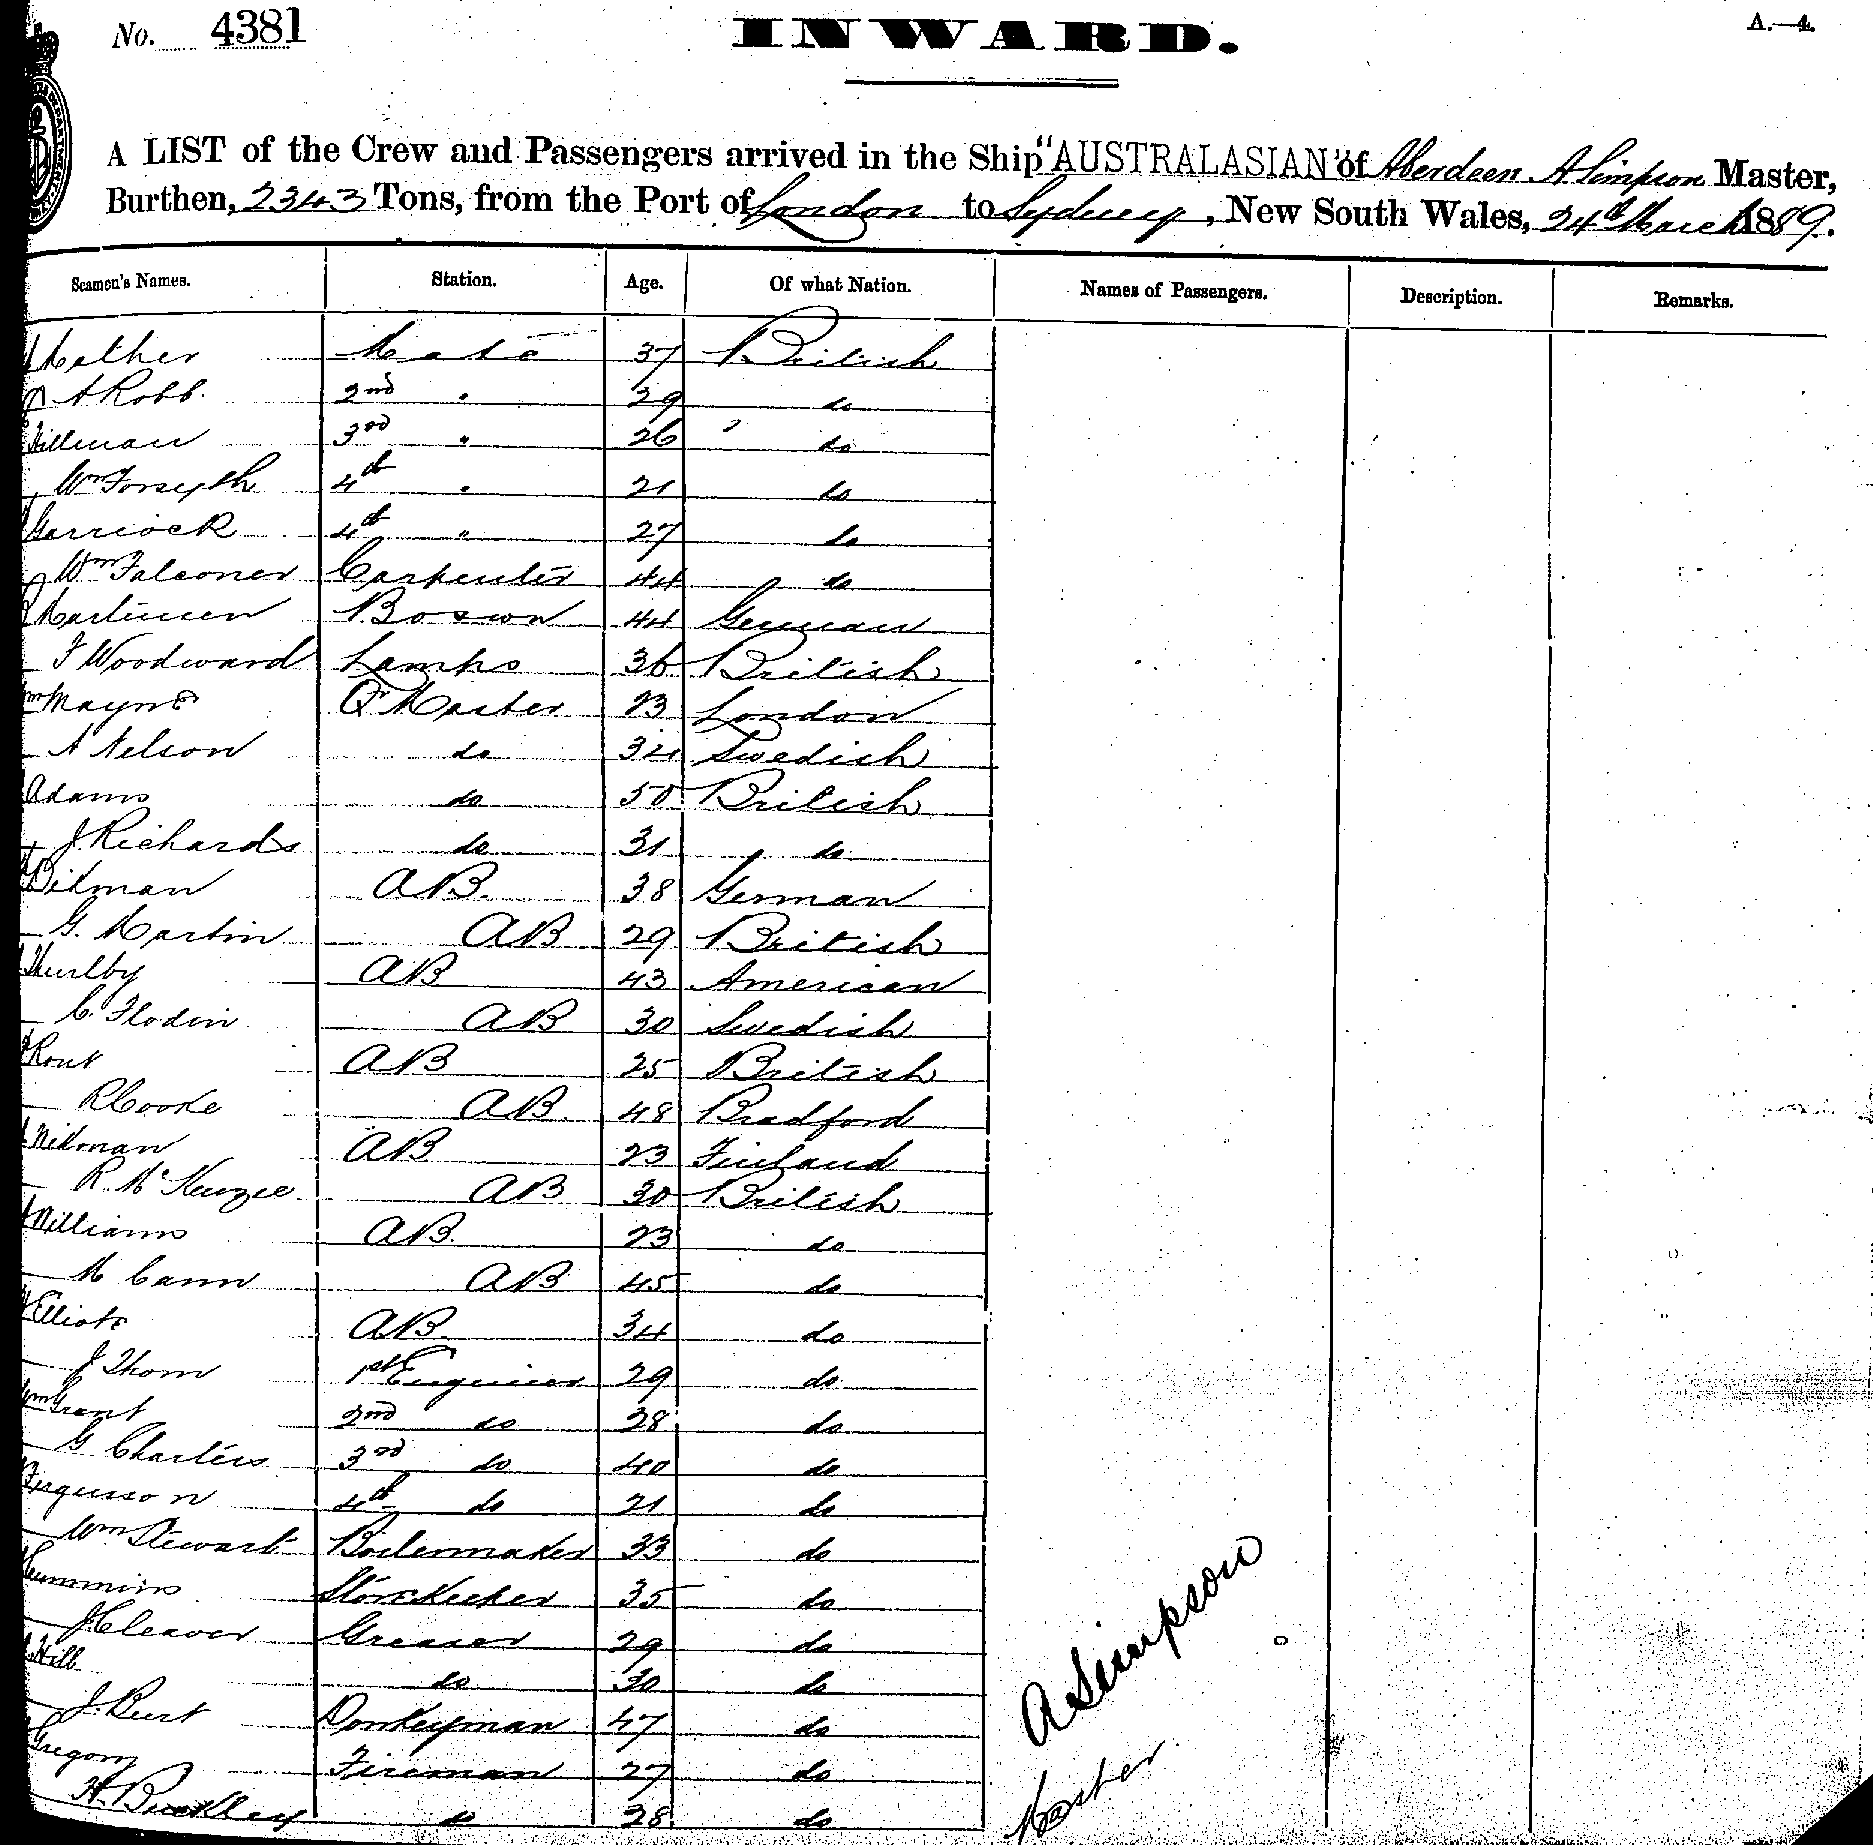 No. 4381 INWARD. A.—4.
A LIST of the Crew and Passengers arrived in the Ship "AUSTRALASIAN" of Aberdeen A Simpson Master,
Burthen, 2343 Tons, from the Port of London to Sydney, New South Wales, 24th March 1889.
Seamen's Names. Station. Age. Of what Nation. Names of Passengers. Description. Remarks.
Mather Mate 37 British
A Robb. 2nd " 29 do
Hillman 3rd " 26 do
Wm Forsyth 4th " 21 do
Garriock 4th " 27 do
Wm Falconer Carpenter 44 do
Martinsen Boswn 44 German
F Woodward Lamps 36 British
Wm Mayne Qr Master 23 London
A Nelson do 34 Swedish
Adams do 50 British
J. Richards do 31 do
Ditman AB. 38 German
G. Martin AB 29 British
Thurlby AB 43 American
C. Flodin AB 30 Swedish
Rout AB 25 British
R Coode AB. 48 Bradford
Wikman AB 23 Finland
R. McKenzie AB 30 British
Williams AB. 23 do
M Cann AB 45 do
Elliott AB. 34 do
J Thom 1st Engineer 29 do
Wm Grant 2nd do 28 do
G Charters 3rd do 40 do
Fergusson 4th do 21 do
Wm Stewart Boilermaker 33 do
Cummins Storekeeper 35 do
J. Cleaver Greaser 29 do
Hill do 30 do
J. Burt Donkeyman 47 do
Gregory Fireman 27 do
H. Buckley do 28 do
A Simpson
Master